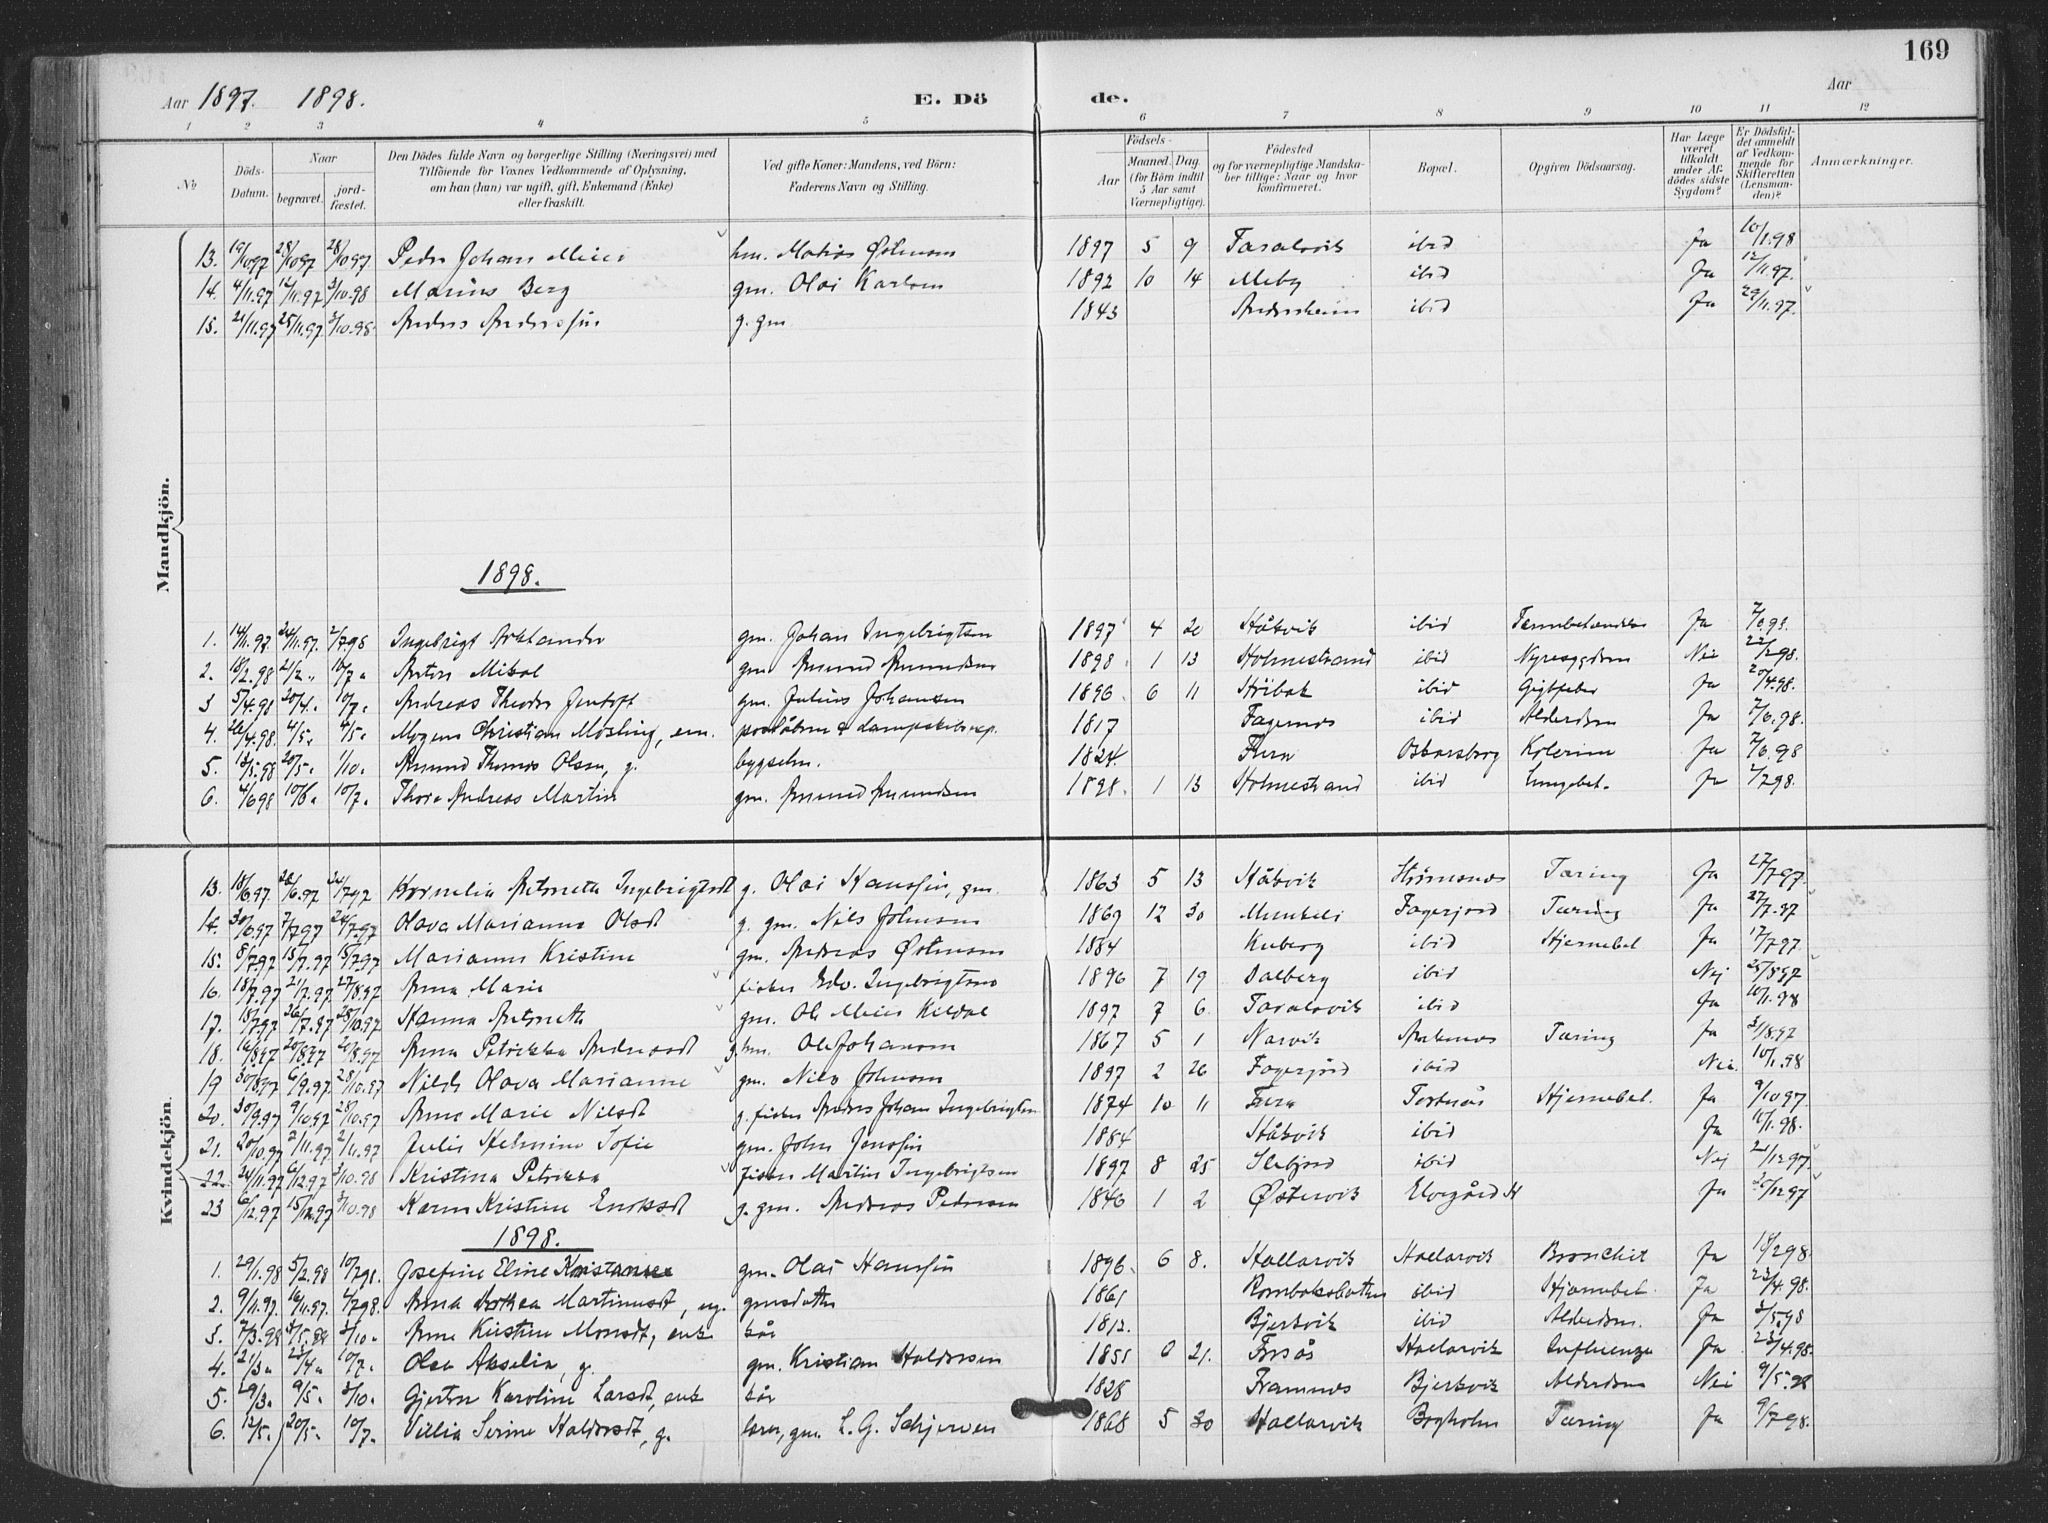 169
Aar 1897. 1898. E. Dö de. Aar
1 2 3 4 5 6 7 8 9 10 11 12
No
Döds-Datum.
Naar
begravet.
jord-fæstet.
Den Dödes fulde Navn og borgerlige Stilling (Næringsvei) med
Tilföiende for Voxnes Vedkommende af Oplysning,
om han (hun) var ugift, gift, Enkemand (Enke)
eller fraskilt.
Ved gifte Koner: Mandens, ved Börn:
Faderens Navn og Stilling.
Födsels-
Aar
Maaned. Dag.
(for Börn indtil
5 Aar samt
Værnepligtige).
Födested
og for værnepligtige Mandska-
ber tillige: Naar og hvor
konfirmeret.
Bopæl.
Opgiven Dödsaarsag.
Har Læge
været
tilkaldt
under Af-
dödes sidste
Sygdom?
Er Dödsfal-
det anmeldt
af Vedkom-
mende for
Skifteretten
(Lensman-
den)?
Anmærkninger.
Mandkjön.
13. 19/10 97 28/10 97 28/10 97 Peder Johan Meier hm. Matias Østensen 1897 5 9 Taraldsvik ibid Ja 10/1.98
14. 4/11.97 12/11.97 3/10.98 Marius Berg gm. Olai Karlsen 1892 10 14 Meby ibid Ja 12/11.97.
15. 21/11.97 25/11.97 3/10.98. Anders Anderssen g. gm 1843 ibid Ja 29/11.97.
1898.
1. 14/11.97. 24/11.97. 2/7 98 Ingebrigt gm. Johan Ingebrigtsen 1897 4 20 Håkvik ibid Ja
2. 18/2.98 21/2 „ 10/7 „ Anton Mikal gm Amund Amundsen 1898. 1 13 Holmestrand ibid Nei 22/2 98.
3 5/4.98 20/4. 10/7. Andreas Theodor Jentoft gm. Julius Johansen 1896. 6 11 ibid Gigtfeber Ja 20/4.98.
4. 26/4.98. 4/5. 4/5. Mogens Christian Mosling, em. 1817 Fagernes ibid Alderdom Ja 7/6.98.
5. 12/5.98 20/5. 1/10. Amund Thomas Olsen, g. bygselm. 1824 Furu Kolerine Ja 7/6.98
6. 4/6 98 10/6. 10/7. Thore Andreas Martin gm. Amund Amundsen 1898. 1 13 Holmestrand ibid Lungebet. Ja 2/7 98.
Kvindekjön.
13. 18/6.97. 26/6.97 24/7 97 Kornelia Antonette Ingebrigtsdt g. Olai Hanssen, gm. 1863 5 13 Håkvik Strømsnes Tæring Ja 27/7 97.
14. 30/6.97 7/7 97 24/7.97 Olava Marianne Olsdt g. gm. Nils Johnsen 1869 12 30 Fagerjord Tæring Ja
15. 8/7.97 15/7.97 15/7.97 Marianne Kristine gm. Andreas Østensen 1884 Kuberg ibid Hjernebet Ja 17/7 97.
16. 18/7.97 21/7.97 27/8.97 Anna Marie fisker Edv. Ingebrigtsen 1896 7 19 Dalberg ibid Nej 25/8 97
17. 18/7 97 26/7.97 28/10.97 Hanna Antonette gm. Ole Meier Kildal 1897 7 6 Taraldsvik ibid Ja 10/1.98
18. 16/8.97 20/8.97 20/8.97 Anna Petrikka Andreasdt g. hm. Ole Johansen 1867 5 1 Narvik Ankenes Tæring Ja 31/8.97
19 30/8.97 6/9.97. 28/10.97 Nilsa Olava Marianne gm. Nils Johnsen 1897 2 26 Fagerjord ibid Nei. 10/1.98
20. 30/9.97 9/10.97 28/10.97 Anne Marie Nilsdt g. fisker Anders Johan Ingebrigtsen 1874 10 11 Furu Hjernebet. Ja 9/10 97.
21. 20/10.97 2/11.97 2/11.97 Julie Helmine Sofie gm. John Jenssen 1884 Håkvik ibid Ja 10/1.98.
22. 24/11.97 6/12.97 3/10.98 Kristina Petrikka fisker Martin Ingebrigtsen 1897 8 25 ibid Nej 21/12 97.
23 6/12.97 15/12.97 3/10.98 Karen Kristine Eriksdt g. gm. Andreas Pedersen 1846 1 2 Østervik Elvegård Ja
1898.
1. 29/1.98 5/2.98 10/7 98. Josefine Eline gm. Olai Hanssen 1896. 6 8. Hallarvik Hallarvik Bronchit Ja 18/2 98.
2. 9/11.97. 16/11.97. 4/7 98. Anna Dorthea Martinusdt, ug. gmsdatter 1861 Rombaksbotten ibid Hjernebet. Ja 23/4.98.
3. 7/3.98 3/5.98 3/10. Anne Kristine Monsdt, enke kår 1812. Bjerkvik ibid Alderdom. Ja 3/5.98
4. 21/3. 23/4. 10/7. Olea Akselia, g. gm. Kristian Haldorsen 1851 0 21. Forsås Hallarvik Influenza Ja 23/4.98.
5. 29/3. 9/5. 3/10. Gjertru Karoline Larsdt, enke kår 1828 Framnes Bjerkvik Alderdom Nei 9/5.98
6. 12/5. 20/5. 10/7. Sirine Haldorsdt, g. lærer, gm. L. G. Schjerven 1868 5 30 Hallarvik Borgholm Tæring Ja 9/7 98.